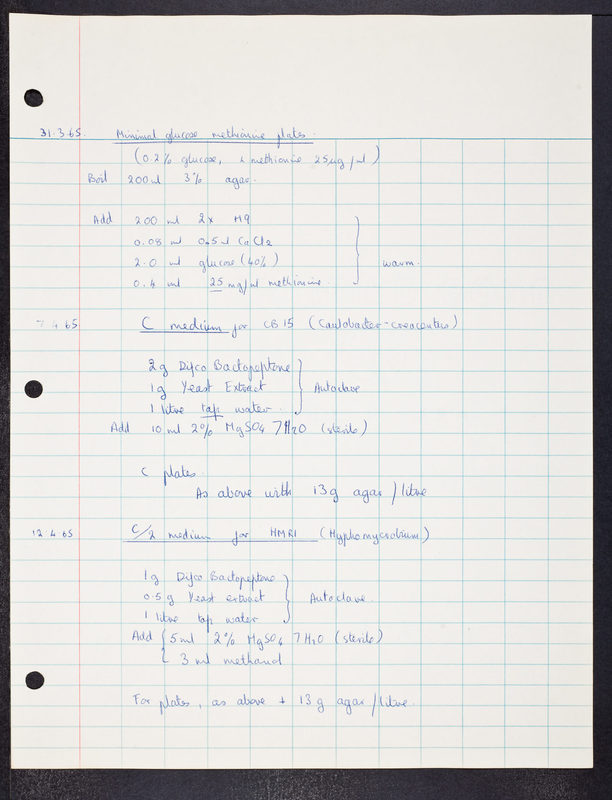 31.3.65. Minimal glucose methionine plates.
(0.2% glucose, L methionine 25µg/ml)
Boil 200ml 3% agar.
Add 200 ml 2x M9
0.08 ml 0.5M CaCl2
2.0 ml glucose (40%) warm.
0.4 ml 25 mg/ml methionine.
7.4.65 C medium for CB15 (Caulobacter-crescentus)
2g Difco Bactopeptone
1g Yeast Extract Autoclave
1 litre tap water.
Add 10 ml 2% MgSO4 7H2O (sterile)
C plates
As above with 13g agar/litre
12.4.65 C/2 medium for HMRI (Hyphomicrobium)
1g Difco Bactopeptone
0.5g Yeast extract Autoclave.
1 litre tap water
Add 5ml 2% MgSO4 7H2O (sterile)
3 ml methanol
For plates, as above + 13g agar/litre.